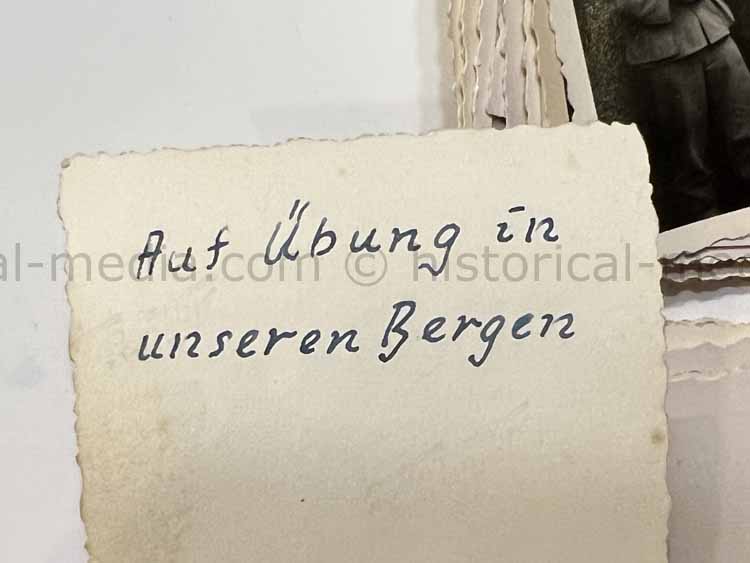 Auf Übung in
al-media.com © historical-m
unseren Bergen